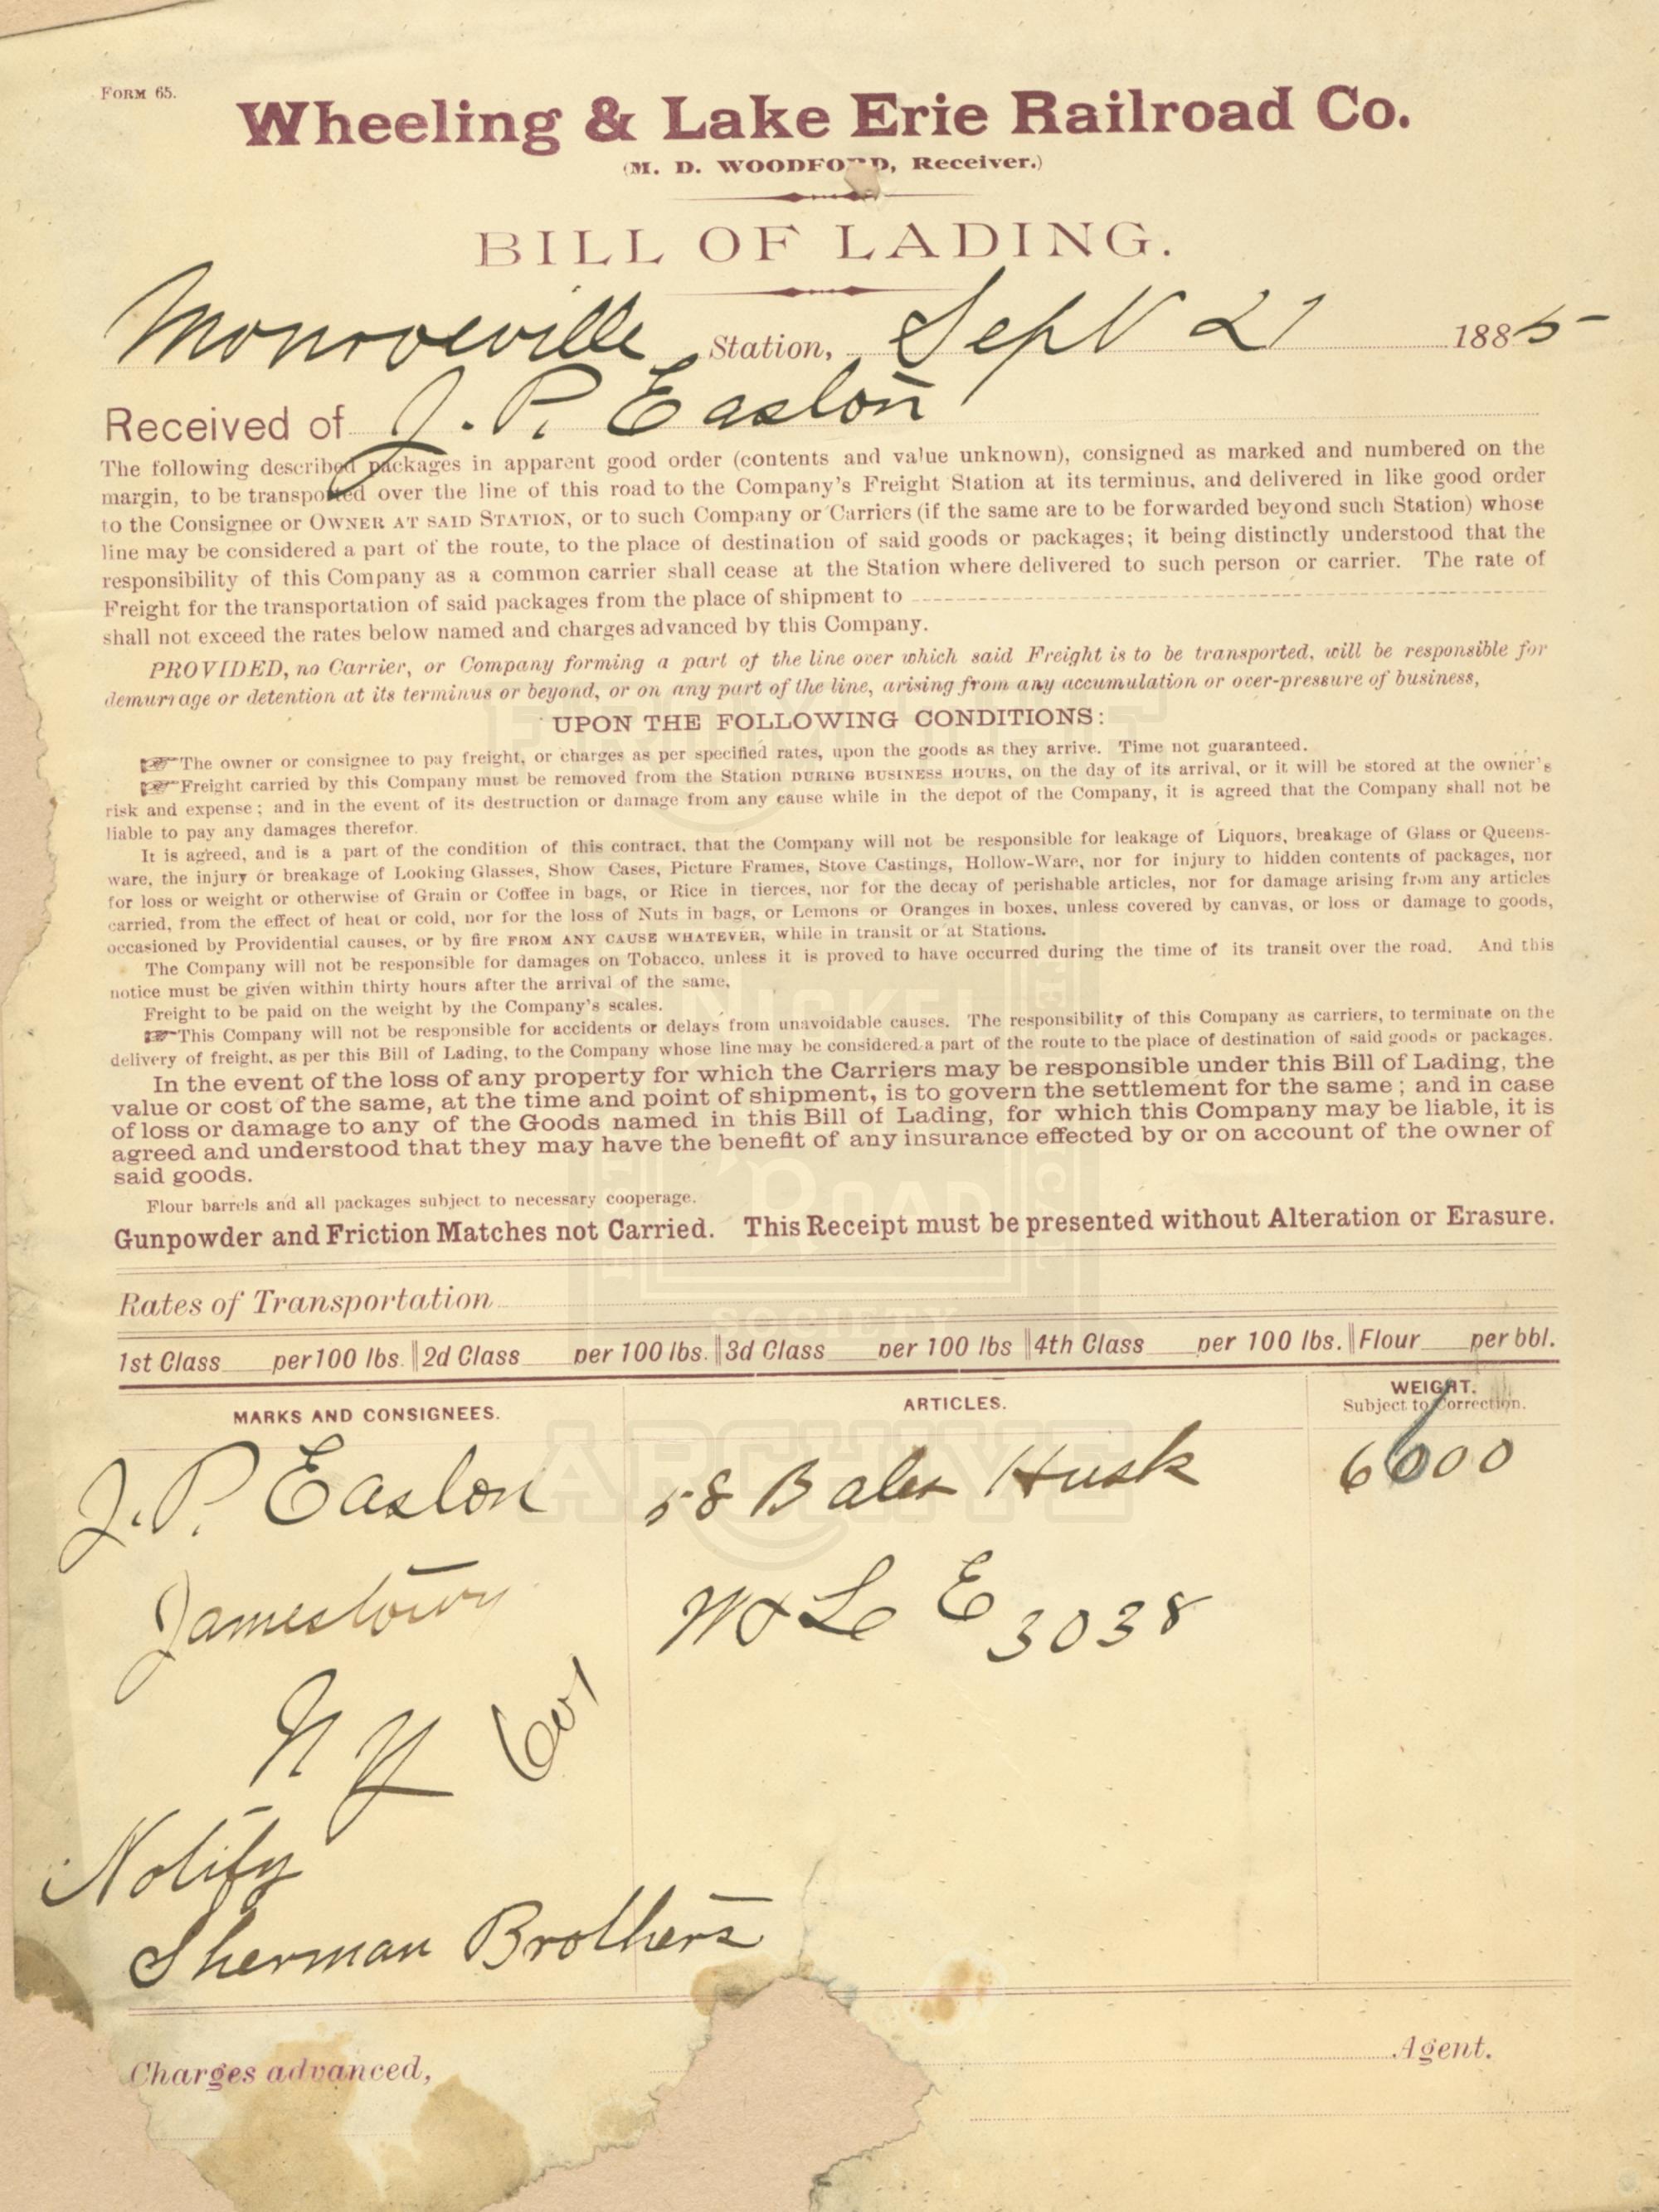 FORM 65.
Wheeling & Lake Erie Railroad Co.
(M. D. WOODFORD, Receiver.)
BILL OF LADING.
Monroeville Station, Sept 21 1885
Received of J. P. Easton
The following described packages in apparent good order (contents and value unknown), consigned as marked and numbered on the
margin, to be transported over the line of this road to the Company's Freight Station at its terminus, and delivered in like good order
to the Consignee or OWNER AT SAID STATION, or to such Company or Carriers (if the same are to be forwarded beyond such Station) whose
line may be considered a part of the route, to the place of destination of said goods or packages; it being distinctly understood that the
responsibility of this Company as a common carrier shall cease at the Station where delivered to such person or carrier. The rate of
Freight for the transportation of said packages from the place of shipment to
shall not exceed the rates below named and charges advanced by this Company.
PROVIDED, no Carrier, or Company forming a part of the line over which said Freight is to be transported, will be responsible for
demurrage or detention at its terminus or beyond, or on any part of the line, arising from any accumulation or over-pressure of business,
UPON THE FOLLOWING CONDITIONS:
☞The owner or consignee to pay freight, or charges as per specified rates, upon the goods as they arrive. Time not guaranteed.
☞Freight carried by this Company must be removed from the Station DURING BUSINESS HOURS, on the day of its arrival, or it will be stored at the owner's
risk and expense; and in the event of its destruction or damage from any cause while in the depot of the Company, it is agreed that the Company shall not be
liable to pay any damages therefor.
It is agreed, and is a part of the condition of this contract, that the Company will not be responsible for leakage of Liquors, breakage of Glass or Queens-
ware, the injury or breakage of Looking Glasses, Show Cases, Picture Frames, Stove Castings, Hollow-Ware, nor for injury to hidden contents of packages, nor
for loss or weight or otherwise of Grain or Coffee in bags, or Rice in tierces, nor for the decay of perishable articles, nor for damage arising from any articles
carried, from the effect of heat or cold, nor for the loss of Nuts in bags, or Lemons or Oranges in boxes, unless covered by canvas, or loss or damage to goods,
occasioned by Providential causes, or by fire FROM ANY CAUSE WHATEVER, while in transit or at Stations.
The Company will not be responsible for damages on Tobacco, unless it is proved to have occurred during the time of its transit over the road. And this
notice must be given within thirty hours after the arrival of the same.
Freight to be paid on the weight by the Company's scales.
☞This Company will not be responsible for accidents or delays from unavoidable causes. The responsibility of this Company as carriers, to terminate on the
delivery of freight, as per this Bill of Lading, to the Company whose line may be considered a part of the route to the place of destination of said goods or packages.
In the event of the loss of any property for which the Carriers may be responsible under this Bill of Lading, the
value or cost of the same, at the time and point of shipment, is to govern the settlement for the same; and in case
of loss or damage to any of the Goods named in this Bill of Lading, for which this Company may be liable, it is
agreed and understood that they may have the benefit of any insurance effected by or on account of the owner of
said goods.
Flour barrels and all packages subject to necessary cooperage.
Gunpowder and Friction Matches not Carried. This Receipt must be presented without Alteration or Erasure.
Rates of Transportation
1st Class per 100 lbs. 2d Class per 100 lbs. 3d Class per 100 lbs 4th Class per 100 lbs. Flour per bbl.
MARKS AND CONSIGNEES. ARTICLES. WEIGHT.
Subject to Correction.
J. P. Easton 58 Bales Husk 6000
Jamestown W & L E 3038
N Y
Notify
Sherman Brothers
Charges advanced, Agent.
NICKEL
ROAD
SOCIETY
ARCHIVE